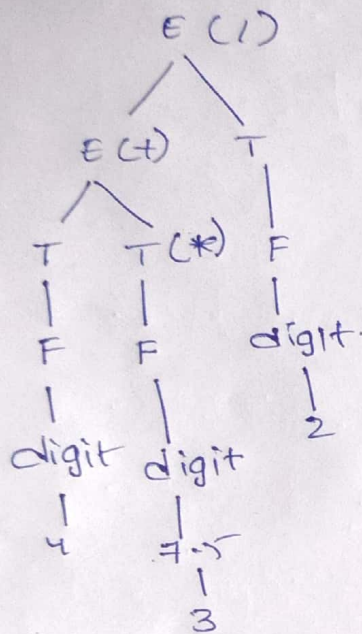 E (/)
E (+) T
T T (*) F
F F digit
digit digit 2
4 7.5
3